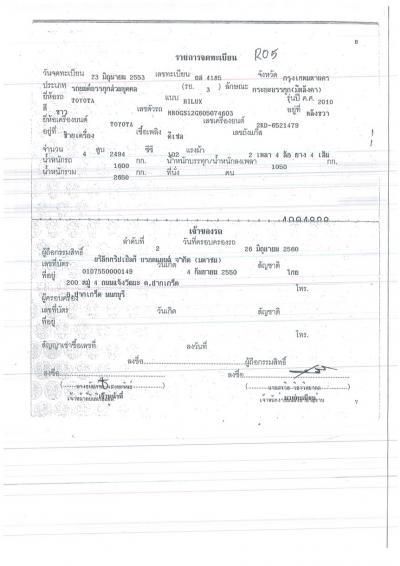 8
รายการจดทะเบียน R05
วันจดทะเบียน 23 มิถุนายน 2553 เลขทะเบียน 4185 จังหวัด กรุงเทพมหานคร
ประเภท รถยนต์บรรทุกส่วนบุคคล (รย. 3 ) ลักษณะ กระบะบรรทุก(มีหลังคา)
ยี่ห้อรถ TOYOTA แบบ HILUX รุ่นปี ค.ศ. 2010
สี ขาว เลขตัวรถ MR0GS12G805074603 อยู่ที่ คลังขวา
ยี่ห้อเครื่องยนต์ TOYOTA เลขเครื่องยนต์ 2KD-6521479
อยู่ที่ ซ้ายเครื่อง เชื้อเพลิง ดีเซล เลขถังแก๊ส
จำนวน 4 สูบ 2494 ซีซี 102 แรงม้า 2 เพลา 4 ล้อ ยาง 4 เส้น
น้ำหนักรถ 1600 กก. น้ำหนักบรรทุก/น้ำหนักลงเพลา 1050 กก.
น้ำหนักรวม 2650 กก. ที่นั่ง คน
เจ้าของรถ
ลำดับที่ 2 วันที่ครอบครองรถ 26 มิถุนายน 2560
ผู้ถือกรรมสิทธิ์ จำกัด (มหาชน)
เลขที่บัตร 0107550000149 วันเกิด 4 กันยายน 2550 สัญชาติ ไทย
ที่อยู่ 200 หมู่ 4 ถนนแจ้งวัฒนะ ต.ปากเกร็ด โทร.
อ.ปากเกร็ด นนทบุรี
ผู้ครอบครอง
เลขที่บัตร วันเกิด สัญชาติ
ที่อยู่
โทร.
สัญญาเช่าซื้อเลขที่ ลงวันที่
ลงชื่อ ผู้ถือกรรมสิทธิ์
ลงชื่อ ลงชื่อ
เจ้าหน้าที่ นายทะเบียน